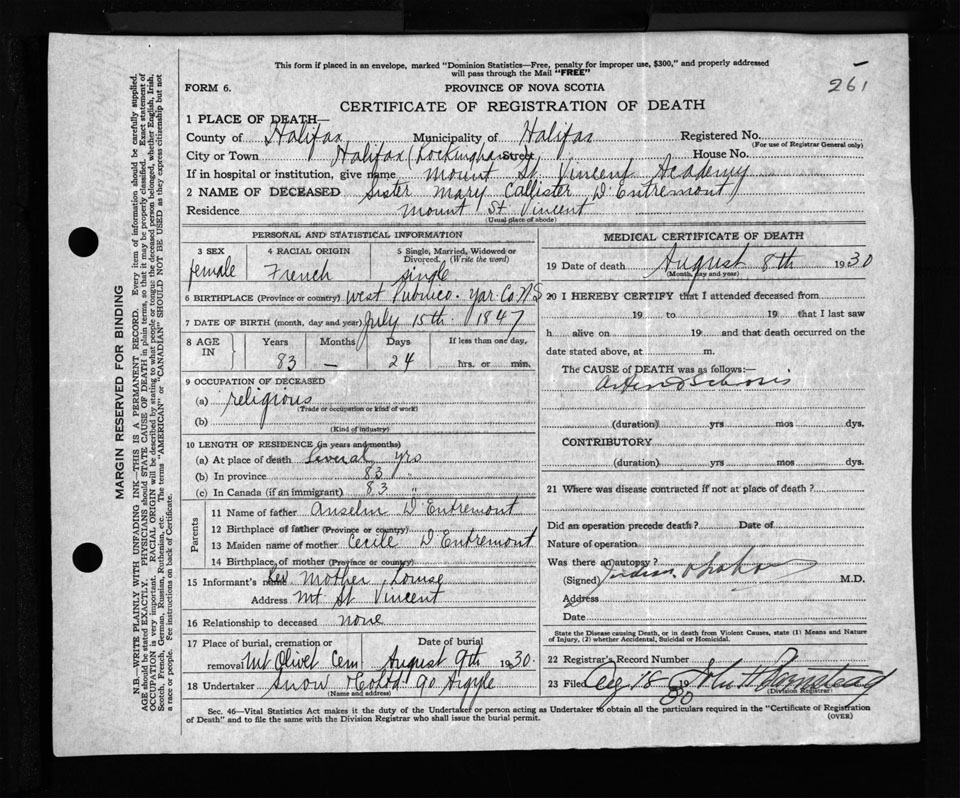 This form if placed in an envelope, marked "Dominion Statistics—Free, penalty for improper use, $300," and properly addressed
will pass through the Mail "FREE"
261
FORM 6.
PROVINCE OF NOVA SCOTIA
CERTIFICATE OF REGISTRATION OF DEATH
1 PLACE OF DEATH—
County of Halifax Municipality of Halifax Registered No.
(For use of Registrar General only)
City or Town Halifax (Rockingham) Street House No.
If in hospital or institution, give name, Mount St. Vincent Academy
2 NAME OF DECEASED Sister Mary Callister D'Entremont
Residence Mount St Vincent
(Usual place of abode)
PERSONAL AND STATISTICAL INFORMATION
3 SEX female
4 RACIAL ORIGIN French
5 Single, Married, Widowed or Divorced. (Write the word) single
6 BIRTHPLACE (Province or country) West Pubnico. Yar. Co. N.S
7 DATE OF BIRTH (month, day and year) July 15th. 1847
8 AGE IN Years Months Days If less than one day,
83 — 24 hrs. or min.
9 OCCUPATION OF DECEASED
(a) religious
(Trade or occupation or kind of work)
(b)
(Kind of industry)
10 LENGTH OF RESIDENCE (in years and months)
(a) At place of death Several yrs
(b) In province 83 "
(c) In Canada (if an immigrant) 83 "
Parents
11 Name of father Anselm D'Entremont
12 Birthplace of father (Province or country)
13 Maiden name of mother Cecile D'Entremont
14 Birthplace of mother (Province or country)
15 Informant's name Rev Mother Louise
Address Mt St Vincent
16 Relationship to deceased none
17 Place of burial, cremation or removal Mt Olivet Cem. Date of burial August 9th 1930.
18 Undertaker Snow & Co Ltd 90 Argyle
(Name and address)
MEDICAL CERTIFICATE OF DEATH
19 Date of death August 8th 1930
(Month, day and year)
20 I HEREBY CERTIFY that I attended deceased from
19 to 19 that I last saw
h alive on 19 and that death occurred on the
date stated above, at m.
The CAUSE of DEATH was as follows:—
(duration) yrs mos dys.
CONTRIBUTORY
(duration) yrs mos dys.
21 Where was disease contracted if not at place of death?
Did an operation precede death? Date of
Nature of operation
Was there an autopsy?
(Signed) M.D.
Address
Date
State the Disease causing Death, or in death from Violent Causes, state (1) Means and Nature
of Injury, (2) whether Accidental, Suicidal or Homicidal.
22 Registrar's Record Number
23 Filed Aug 18 1930
(Division Registrar)
Sec. 46—Vital Statistics Act makes it the duty of the Undertaker or person acting as Undertaker to obtain all the particulars required in the "Certificate of Registration
of Death" and to file the same with the Division Registrar who shall issue the burial permit.
(OVER)
MARGIN RESERVED FOR BINDING
N.B.—WRITE PLAINLY WITH UNFADING INK—THIS IS A PERMANENT RECORD. Every item of information should be carefully supplied.
AGE should be stated EXACTLY. PHYSICIANS should STATE CAUSE OF DEATH in plain terms, so that it may be properly classified. Exact statement of
OCCUPATION is very important. RACIAL ORIGIN will be described by stating to what people or tongue the deceased person belonged, whether English, Irish,
Scotch, French, German, Russian, Ruthenian, etc. The terms "AMERICAN" or "CANADIAN" SHOULD NOT BE USED as they express citizenship but not
a race or people. See instructions on back of Certificate.